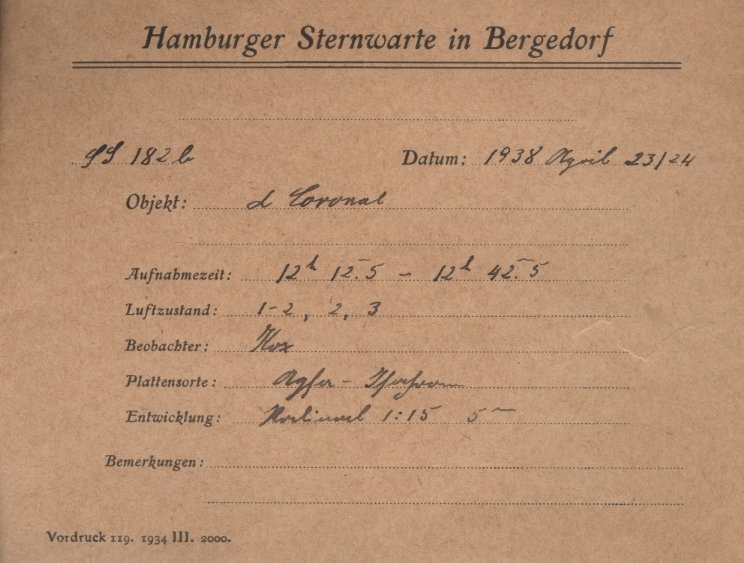 Hamburger Sternwarte in Bergedorf
182 b Datum: 1938 April 23/24
Objekt: α Coronae
Aufnahmezeit: 12h 12.5 - 12h 42.5
Luftzustand: 1-2, 2, 3
Beobachter:
Plattensorte: Agfa - Isochrom
Entwicklung: Rodinal 1:15 5m
Bemerkungen:
Vordruck 119. 1934 III. 2000.